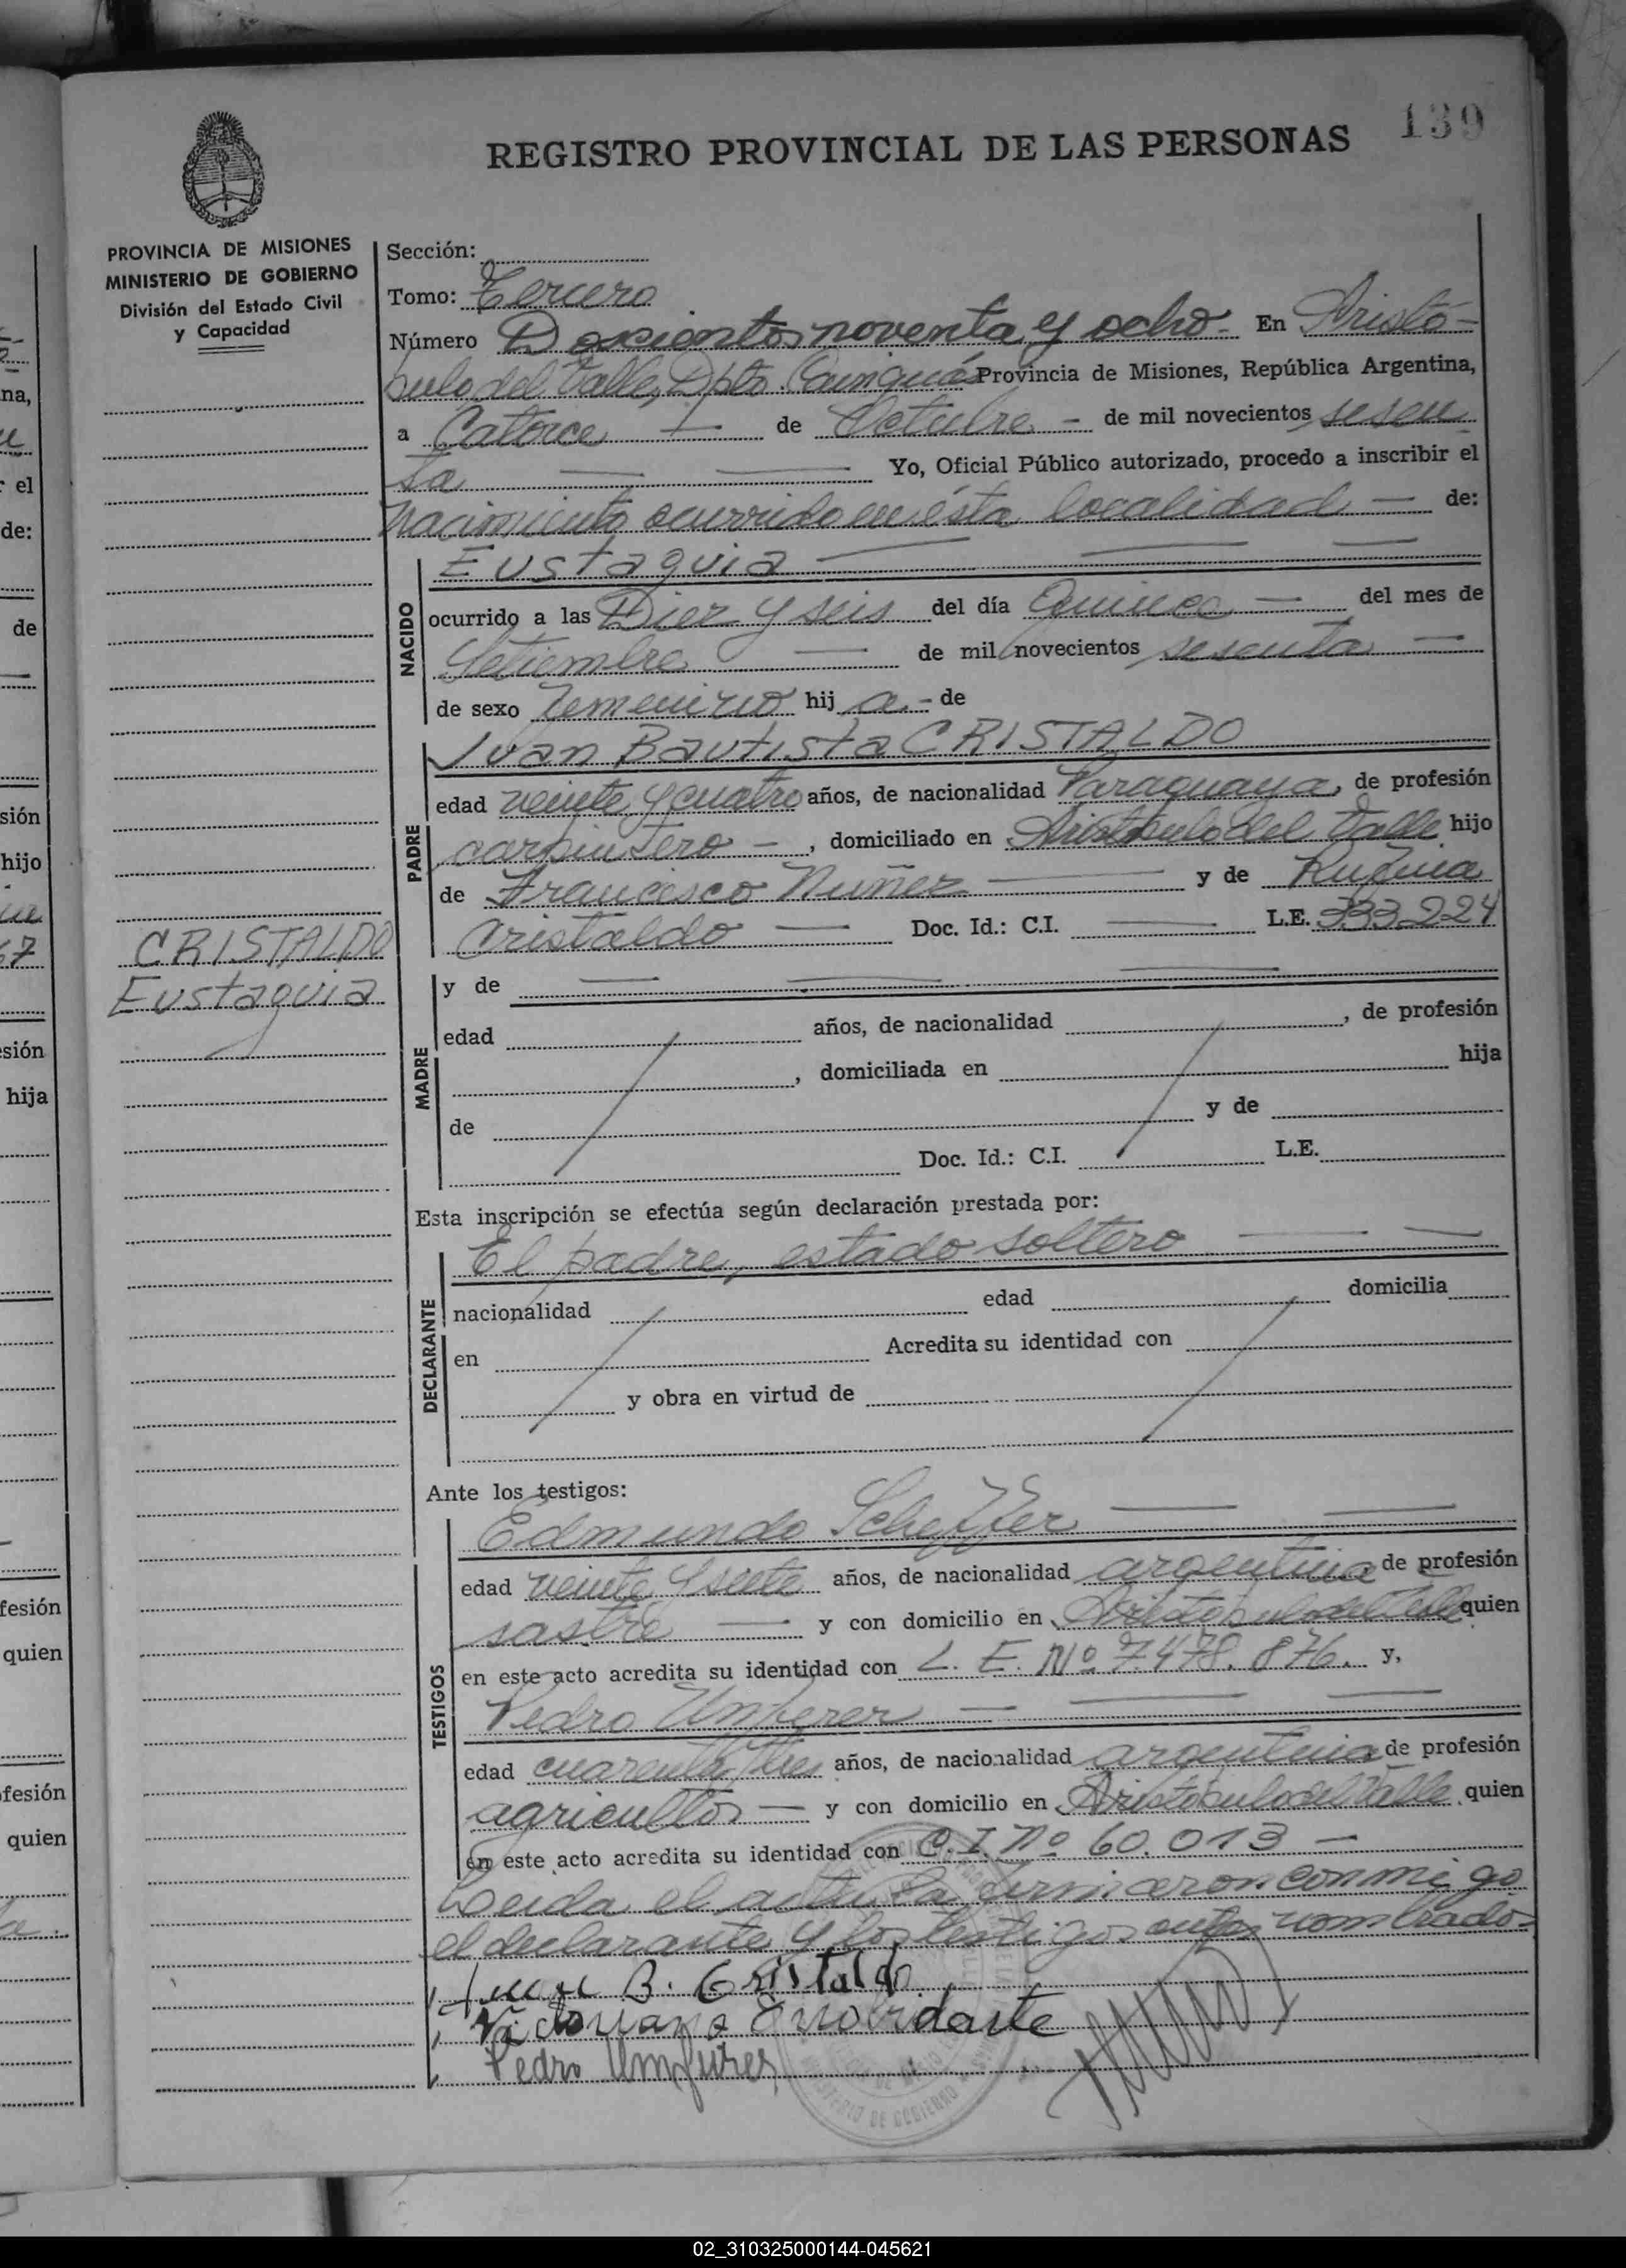 139
REGISTRO PROVINCIAL DE LAS PERSONAS
PROVINCIA DE MISIONES
MINISTERIO DE GOBIERNO
División del Estado Civil
y Capacidad
Sección:
Tomo: Tercero
Número Doscientos noventa y ocho - En Aristó-
bulo del Valle, Dpto. Cainguás Provincia de Misiones, República Argentina,
a Catorce — de Octubre - de mil novecientos sesen
ta — — Yo, Oficial Público autorizado, procedo a inscribir el
nacimiento ocurrido en ésta localidad — de:
NACIDO
Eustaquia — — —
ocurrido a las Diez y seis del día Quince — del mes de
Setiembre — de mil novecientos sesenta —
de sexo femenino hij a - de
PADRE
Juan Bautista CRISTALDO
edad veinte y cuatro años, de nacionalidad Paraguaya, de profesión
carpintero - , domiciliado en Aristóbulo del Valle hijo
de Francisco Nuñez — y de Rufina
Cristaldo — Doc. Id.: C.I. — L.E. 333.224
CRISTALDO
Eustaquia
MADRE
y de — — —
edad años, de nacionalidad , de profesión
, domiciliada en hija
de y de
Doc. Id.: C.I. L.E.
Esta inscripción se efectúa según declaración prestada por:
DECLARANTE
El padre, estado soltero — —
nacionalidad edad domicilia
en Acredita su identidad con
y obra en virtud de
Ante los testigos:
TESTIGOS
Edmundo Scheffer — —
edad veinte y siete años, de nacionalidad argentina de profesión
sastre — y con domicilio en Aristobulo del Valle quien
en este acto acredita su identidad con L. E. Nº 7.478.876. y,
Pedro — — —
edad cuarenta tres años, de nacionalidad argentina de profesión
agricultor — y con domicilio en Aristobulo del Valle quien
en este acto acredita su identidad con C.I. Nº 60.013 —
Leida el acta la firmaron conmigo
el declarante y los testigos antes nombrados
Juan B. Cristaldo
Pedro
na,
el
de:
de
sión
hijo
67
sión
hija
fesión
quien
fesión
quien
DE GOBIERNO
02_310325000144-045621